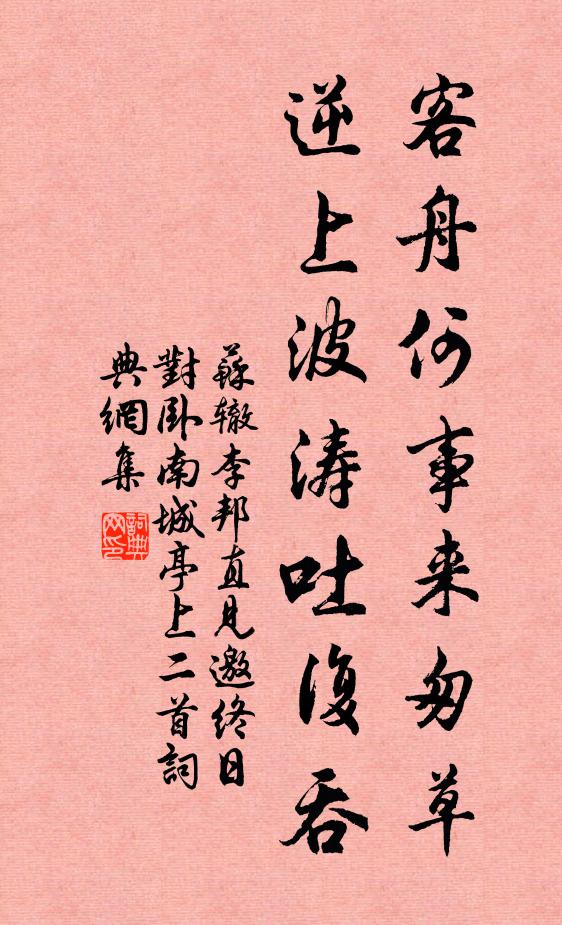 客舟何事来匆草
逆上波涛吐復吞
蘇辙李邦直見邀终日
對卧南城亭上二首詞
典網集
詞典网印